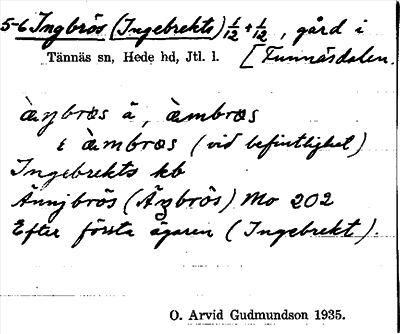 5-6 Ingbrös (Ingebrekts) 1/12 + 1/12, gård i
Tännäs sn, Hede hd, Jtl. l. [Funnäsdalen.
àŋbrɷs å, àmbrɷs
i àmbrɷs (vid befintlighet)
Ingebrekts kb
Ånnjbrös (Åŋbrös) Mo 202
Efter första ägaren (Ingebrekt).
O. Arvid Gudmundson 1935.